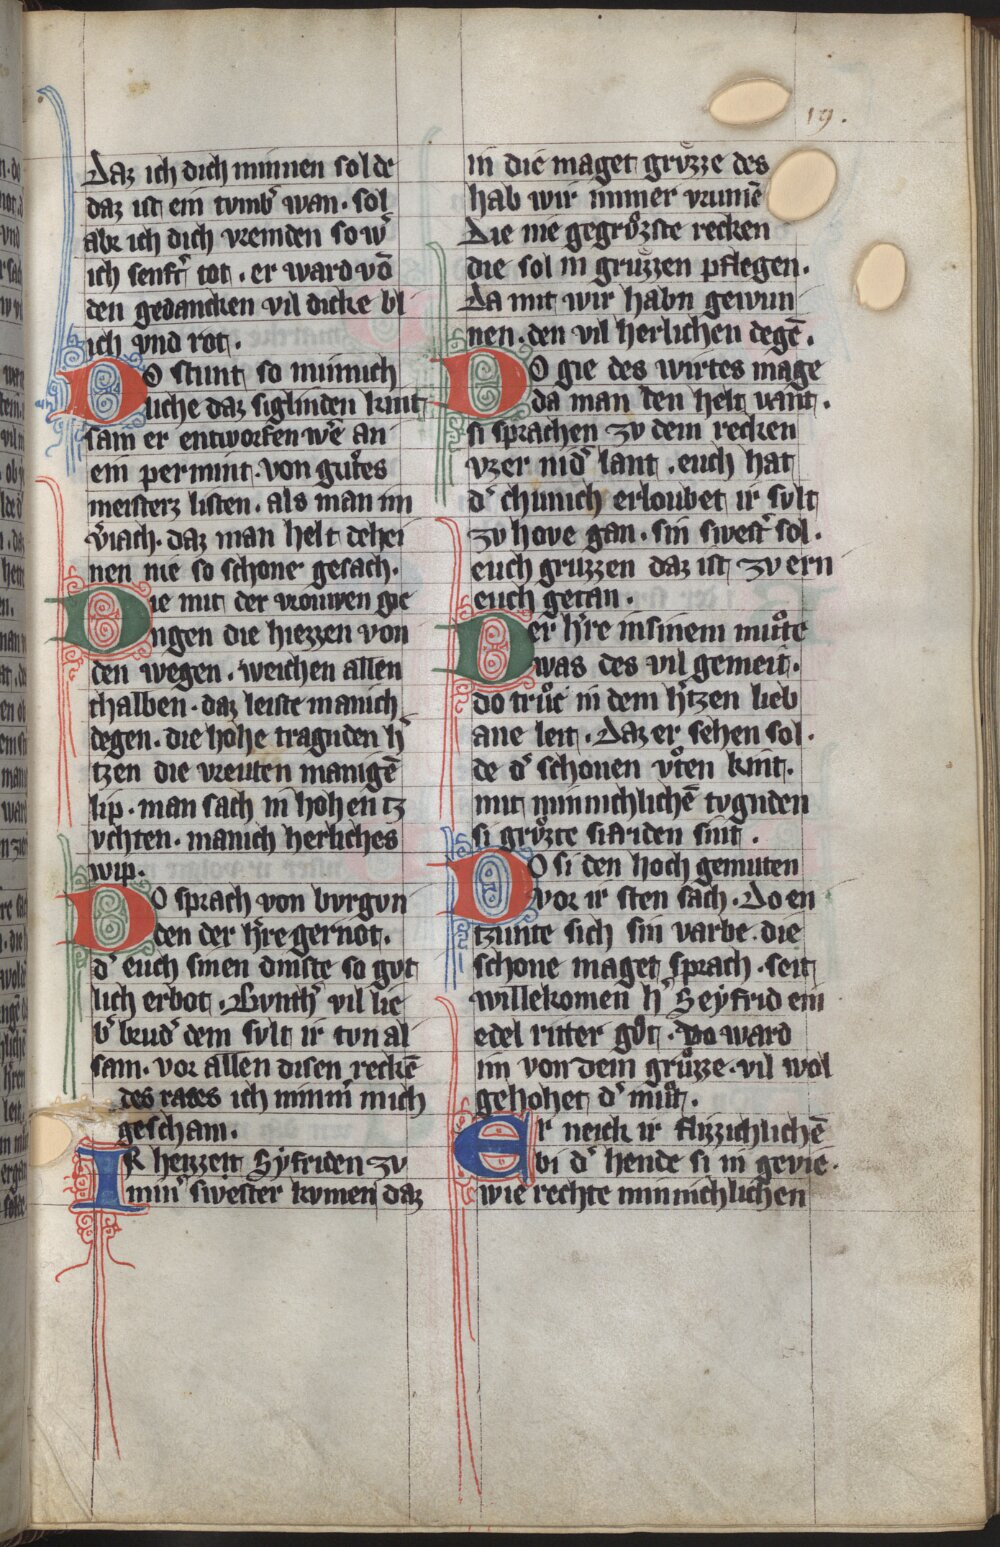 19.
Daz ich dich minnen solde
daz ist ein tvmb᷑ wan · sol
abr ich dich vremden so w᷑
ich senft᷑ tot · er ward vō
den gedancken vil dicke bl
ich vnd rot ·
DO stunt so minnich
liche daz siglinden kint
sam er entworfen wē an
ein permint · von gutes
meisterz listen · als man im
v᷑iach · daz man helt dehei
nen nie so schone gesach ·
Die mit der vrouwen gie
ngen die hiezzen von
den wegen · weichen allen
thalben · daz leiste manich
degen · die hohe tragnden h᷑
tzen die vreuten manigē
lip · man sach in hohen tz
vchten · manich herliches
wip ·
DO sprach von bvrgvn
den der h᷑re gernot ·
d᷑ euch sinen dinste so gvt
lich erbot · Gvnth᷑ vil lie
b᷑ brud᷑ dem svlt ir tvn al
sam · vor allen disen reckē
des rates ich nimm᷑ mich
gescham ·
IR heizzeit Syfriden zv
min᷑ swester kvmen daz
in die maget grvzze des
hab wir immer vrumē
Die nie gegrůzste recken
die sol in gruzzen pflegen ·
Da mit wir habn gewun
nen · den vil herlichen degē ·
DO gie des wirtes mage
da man den helt vant ·
si sprachen zv dem recken
vzer nid᷑ lant · euch hat
d᷑ chunich erloubet ir svlt
zv hove gan · sin swest᷑ sol ·
euch gruzzen daz ist zv ern
euch getan ·
Der h᷑re in sinem můte
was des vil gemeit ·
do trůc in dem h᷑tzen lieb
ane leit · Daz er sehen sol ·
de d᷑ schonen vͦten kint ·
mit minnichlichē tvgnden
si grůzte sifriden sint ·
DO si den hoch gemuten
vor ir sten sach · Do en
tzunte sich sin varbe · die
schone maget sprach · seit
willekomen h᷑ Seyfrid ein
edel ritter gůt · Do ward
im von dem grůzze · vil wol
gehohet d᷑ můt ·
Er neich ir flizzichlichē
bi d᷑ hende si in gevie ·
wie rechte minnichlichen